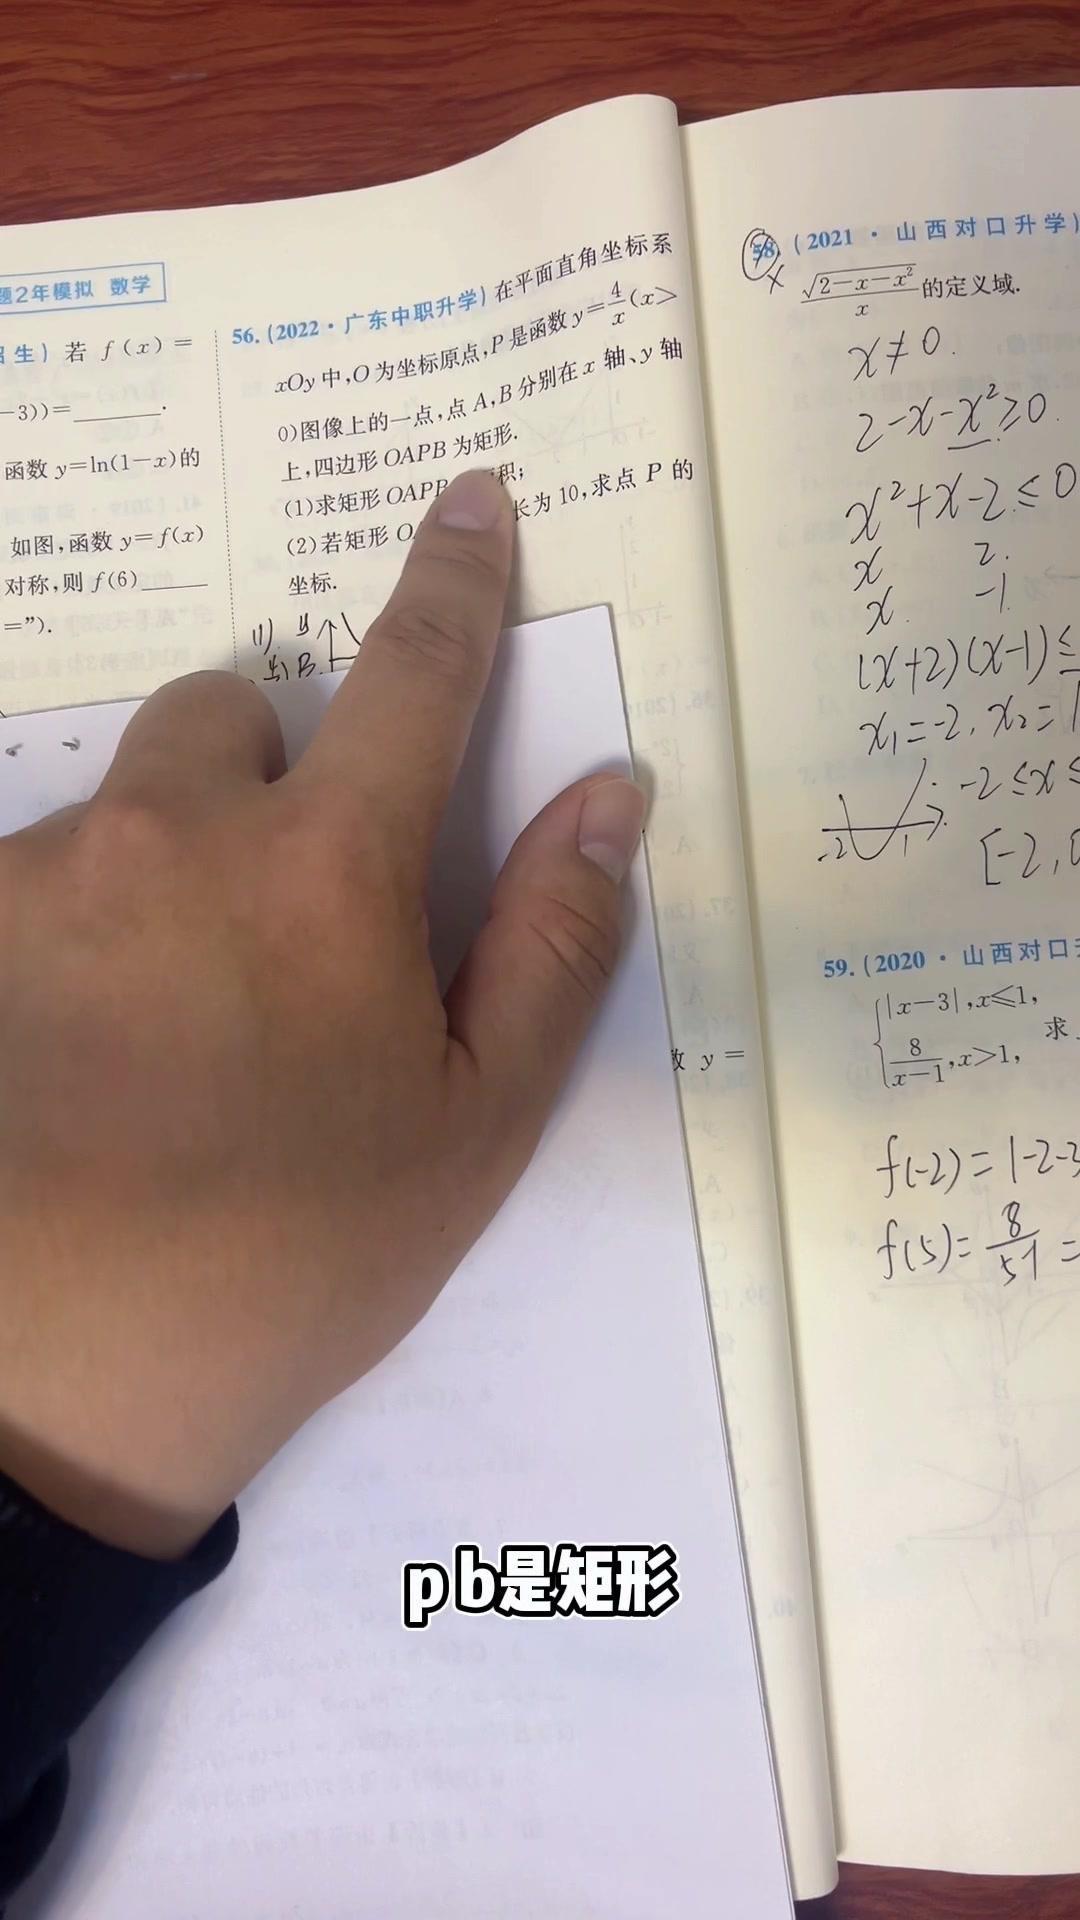 题2年模拟 数学
招生) 若 f(x)=
-3))=______.
函数 y=ln(1-x)的
如图,函数 y=f(x)
对称,则 f(6)____
=”).
56.(2022·广东中职升学)在平面直角坐标系
xOy 中,O 为坐标原点,P 是函数 y=4/x(x>
0)图像上的一点,点 A,B 分别在 x 轴、y 轴
上,四边形 OAPB 为矩形.
(1)求矩形 OAPB 积;
(2)若矩形 OA 长为 10,求点 P 的
坐标.
(1). y
B
数 y=
58.(2021·山西对口升学)
√(2-x-x²)/x 的定义域.
x≠0.
2-x-x²≥0.
x²+x-2≤0
x 2.
x. -1.
(x+2)(x-1)≤
x₁=-2, x₂=1
-2≤x≤
-2 1
[-2,0
59.(2020·山西对口
|x-3|,x≤1,
求
8/(x-1),x>1,
f(-2)=|-2-3
f(5)=8/5-1=
p b是矩形